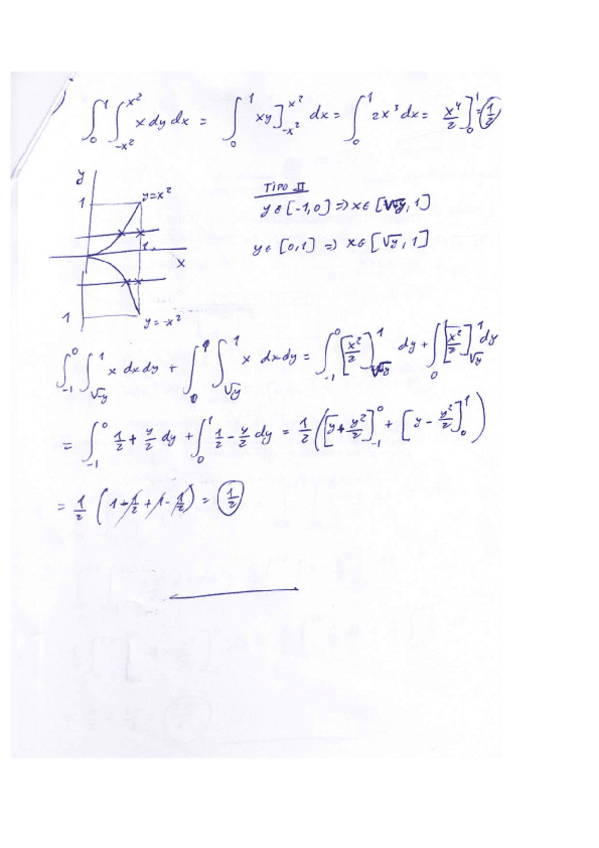 ∫₀¹ ∫₋ₓ²^x² x dy dx = ∫₀¹ xy]₋ₓ²^x² dx = ∫₀¹ 2x³ dx = x⁴/2]₀¹ = 1/2
y
1
y=x²
TIPO II
y∈[-1,0] ⇒ x∈[√-y, 1]
1
x
y∈ [0,1] ⇒ x∈[√y, 1]
1
y=-x²
∫₋₁⁰ ∫_√-y^1 x dx dy + ∫₀¹ ∫_√y^1 x dx dy = ∫₋₁⁰ [x²/2]_√-y^1 dy + ∫₀ [x²/2]_√y^1 dy
= ∫₋₁⁰ 1/2 + y/2 dy + ∫₀¹ 1/2 - y/2 dy = 1/2 ([y + y²/2]₋₁⁰ + [y - y²/2]₀¹)
= 1/2 (1 - 1/2 + 1 - 1/2) = 1/2